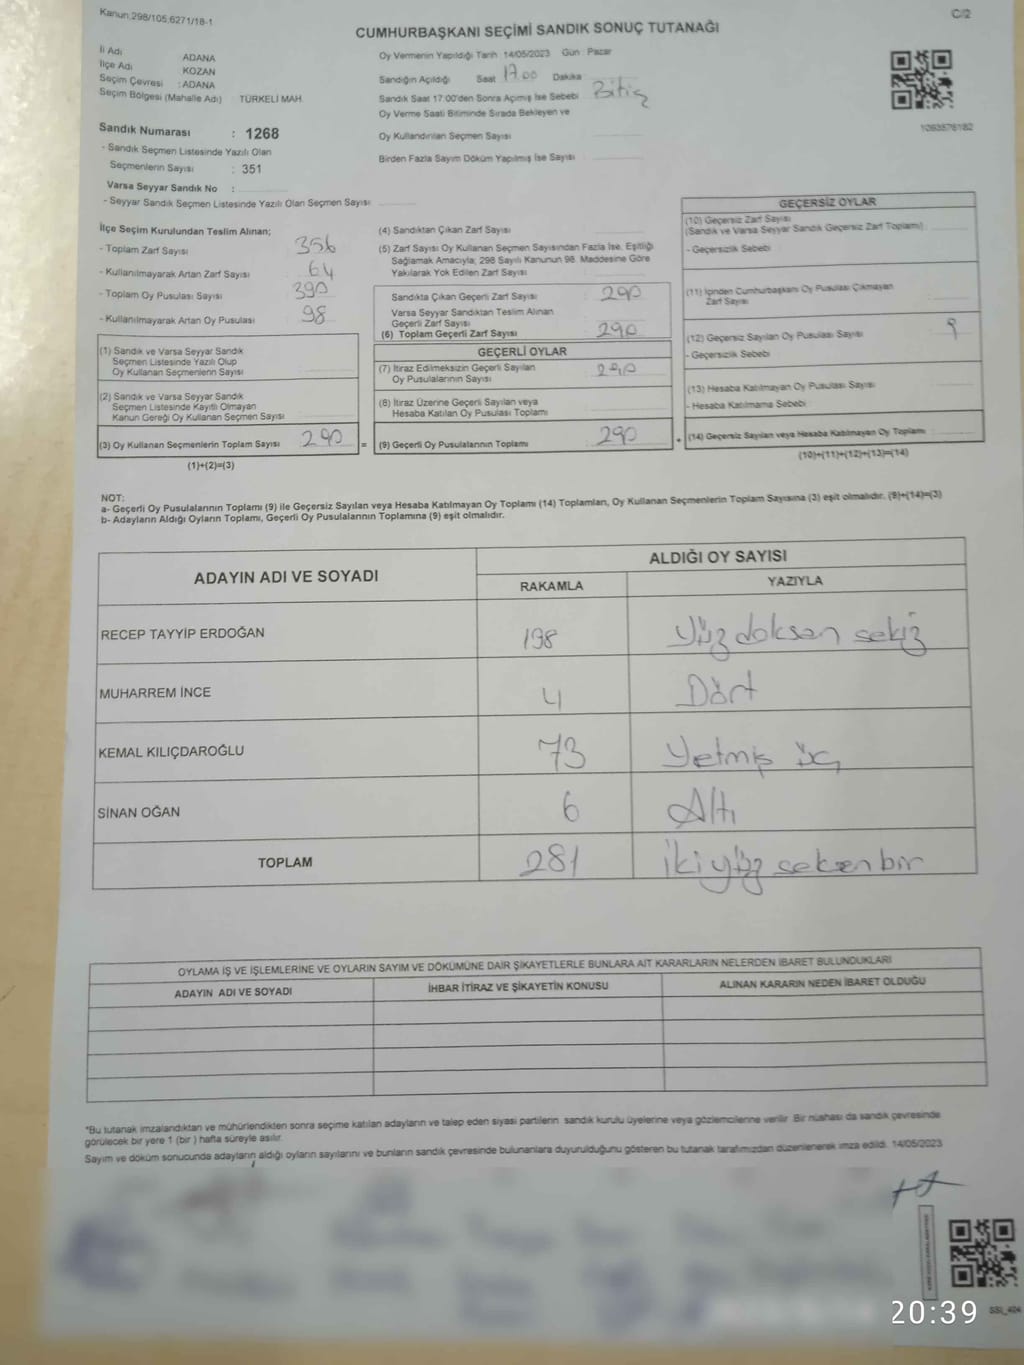 Kanun:298/105,6271/18-1
C/2
CUMHURBAŞKANI SEÇİMİ SANDIK SONUÇ TUTANAĞI
İl Adı ADANA
İlçe Adı KOZAN
Seçim Çevresi : ADANA
Seçim Bölgesi (Mahalle Adı) TÜRKELİ MAH.
Sandık Numarası : 1268
- Sandık Seçmen Listesinde Yazılı Olan
Seçmenlerin Sayısı : 351
Varsa Seyyar Sandık No :
- Seyyar Sandık Seçmen Listesinde Yazılı Olan Seçmen Sayısı
Oy Vermenin Yapıldığı Tarih : 14/05/2023 Gün : Pazar
Sandığın Açıldığı Saat 17.00 Dakika
Sandık Saat 17:00'den Sonra Açımış İse Sebebi Bitiş
Oy Verme Saati Bitiminde Sırada Bekleyen ve
Oy Kullandırılan Seçmen Sayısı
Birden Fazla Sayım Döküm Yapılmış İse Sayısı
1093576182
İlçe Seçim Kurulundan Teslim Alınan;
- Toplam Zarf Sayısı 356
- Kullanılmayarak Artan Zarf Sayısı 64
- Toplam Oy Pusulası Sayısı 390
- Kullanılmayarak Artan Oy Pusulası 98
(1) Sandık ve Varsa Seyyar Sandık
Seçmen Listesinde Yazılı Olup
Oy Kullanan Seçmenlerin Sayısı
(2) Sandık ve Varsa Seyyar Sandık
Seçmen Listesinde Kayıtlı Olmayan
Kanun Gereği Oy Kullanan Seçmen Sayısı
(3) Oy Kullanan Seçmenlerin Toplam Sayısı 290 =
(1)+(2)=(3)
(4) Sandıktan Çıkan Zarf Sayısı
(5) Zarf Sayısı Oy Kullanan Seçmen Sayısından Fazla İse, Eşitliği
Sağlamak Amacıyla; 298 Sayılı Kanunun 98. Maddesine Göre
Yakılarak Yok Edilen Zarf Sayısı
Sandıkta Çıkan Geçerli Zarf Sayısı 290
Varsa Seyyar Sandıktan Teslim Alınan
Geçerli Zarf Sayısı
(6) Toplam Geçerli Zarf Sayısı 290
GEÇERLİ OYLAR
(7) İtiraz Edilmeksizin Geçerli Sayılan 290
Oy Pusulalarının Sayısı
(8) İtiraz Üzerine Geçerli Sayılan veya
Hesaba Katılan Oy Pusulası Toplamı
(9) Geçerli Oy Pusulalarının Toplamı 290 +
GEÇERSİZ OYLAR
(10) Geçersiz Zarf Sayısı
(Sandık ve Varsa Seyyar Sandık Geçersiz Zarf Toplamı)
- Geçersizlik Sebebi
(11) İçinden Cumhurbaşkanı Oy Pusulası Çıkmayan
Zarf Sayısı
(12) Geçersiz Sayılan Oy Pusulası Sayısı 9
- Geçersizlik Sebebi
(13) Hesaba Katılmayan Oy Pusulası Sayısı
- Hesaba Katılmama Sebebi
(14) Geçersiz Sayılan veya Hesaba Katılmayan Oy Toplamı
(10)+(11)+(12)+(13)=(14)
NOT:
a- Geçerli Oy Pusulalarının Toplamı (9) ile Geçersiz Sayılan veya Hesaba Katılmayan Oy Toplamı (14) Toplamları, Oy Kullanan Seçmenlerin Toplam Sayısına (3) eşit olmalıdır. (9)+(14)=(3)
b- Adayların Aldığı Oyların Toplamı, Geçerli Oy Pusulalarının Toplamına (9) eşit olmalıdır.
ADAYIN ADI VE SOYADI
ALDIĞI OY SAYISI
RAKAMLA YAZIYLA
RECEP TAYYİP ERDOĞAN 198 Yüz doksan sekiz
MUHARREM İNCE 4 Dört
KEMAL KILIÇDAROĞLU 73 Yetmiş üç
SİNAN OĞAN 6 Altı
TOPLAM 281 İki yüz seksen bir
OYLAMA İŞ VE İŞLEMLERİNE VE OYLARIN SAYIM VE DÖKÜMÜNE DAİR ŞİKAYETLERLE BUNLARA AİT KARARLARIN NELERDEN İBARET BULUNDUKLARI
ADAYIN ADI VE SOYADI İHBAR İTİRAZ VE ŞİKAYETİN KONUSU ALINAN KARARIN NEDEN İBARET OLDUĞU
*Bu tutanak imzalandıktan ve mühürlendikten sonra seçime katılan adayların ve talep eden siyasi partilerin sandık kurulu üyelerine veya gözlemcilerine verilir. Bir nüshası da sandık çevresinde
görülecek bir yere 1 (bir) hafta süreyle asılır.
Sayım ve döküm sonucunda adayların aldığı oyların sayılarını ve bunların sandık çevresinde bulunanlara duyurulduğunu gösteren bu tutanak tarafımızdan düzenlenerek imza edildi. 14/05/2023
SSI_404
20:39